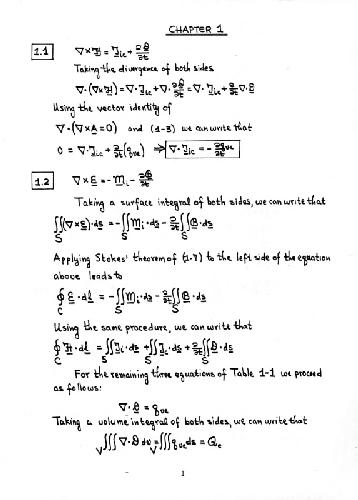 CHAPTER 1
1.1 ∇×ℋ = 𝒥ic + ∂𝒟/∂t
Taking the divergence of both sides
∇·(∇×ℋ) = ∇·𝒥ic + ∇·∂𝒟/∂t = ∇·𝒥ic + ∂/∂t ∇·𝒟
Using the vector identity of
∇·(∇×A = 0) and (1-3) we can write that
0 = ∇·𝒥ic + ∂/∂t(qve) ⇒ ∇·𝒥ic = -∂qve/∂t
1.2 ∇×ℰ = -ℳi - ∂ℬ/∂t
Taking a surface integral of both sides, we can write that
∬S(∇×ℰ)·ds = -∬Sℳi·ds - ∂/∂t∬Sℬ·ds
Applying Stokes' theorem of (1-7) to the left side of the equation
above leads to
∮C ℰ·dl = -∬Sℳi·ds - ∂/∂t∬Sℬ·ds
Using the same procedure, we can write that
∮C ℋ·dl = ∬S𝒥i·ds + ∬S𝒥c·ds + ∂/∂t∬S𝒟·ds
For the remaining three equations of Table 1-1 we proceed
as follows:
∇·𝒟 = qve
Taking a volume integral of both sides, we can write that
∭V ∇·𝒟 dv = ∭V qve dv = 𝒬e
1